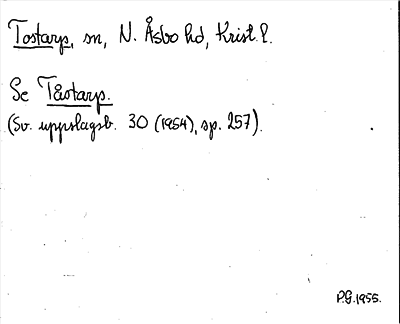 Tostarp, sn, N. Åsbo hd, Krist. l.
Se Tåstarp.
(Sv. uppslagsb. 30 (1954), sp. 257).
P.G.1955.